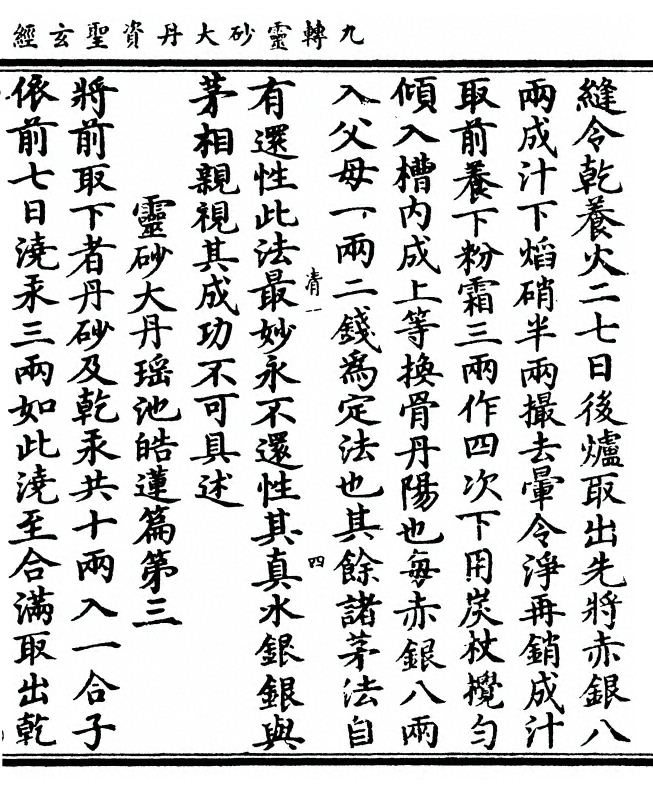 九轉靈砂大丹資聖玄經
縫令乾養火二七日後爐取出先將赤銀八
兩成汁下焰硝半兩撮去暈令淨再銷成汁
取前養下粉霜三兩作四次下用炭杖攪勻
傾入槽內成上等換骨丹陽也每赤銀八兩
入父母一兩二錢為定法也其餘諸茅法自
清一
四
有還性此法最妙永不還性其真水銀銀與
茅相親視其成功不可具述
靈砂大丹瑶池皓蓮篇第三
將前取下者丹砂及乾汞共十兩入一合子
依前七日澆汞三兩如此澆至合滿取出乾